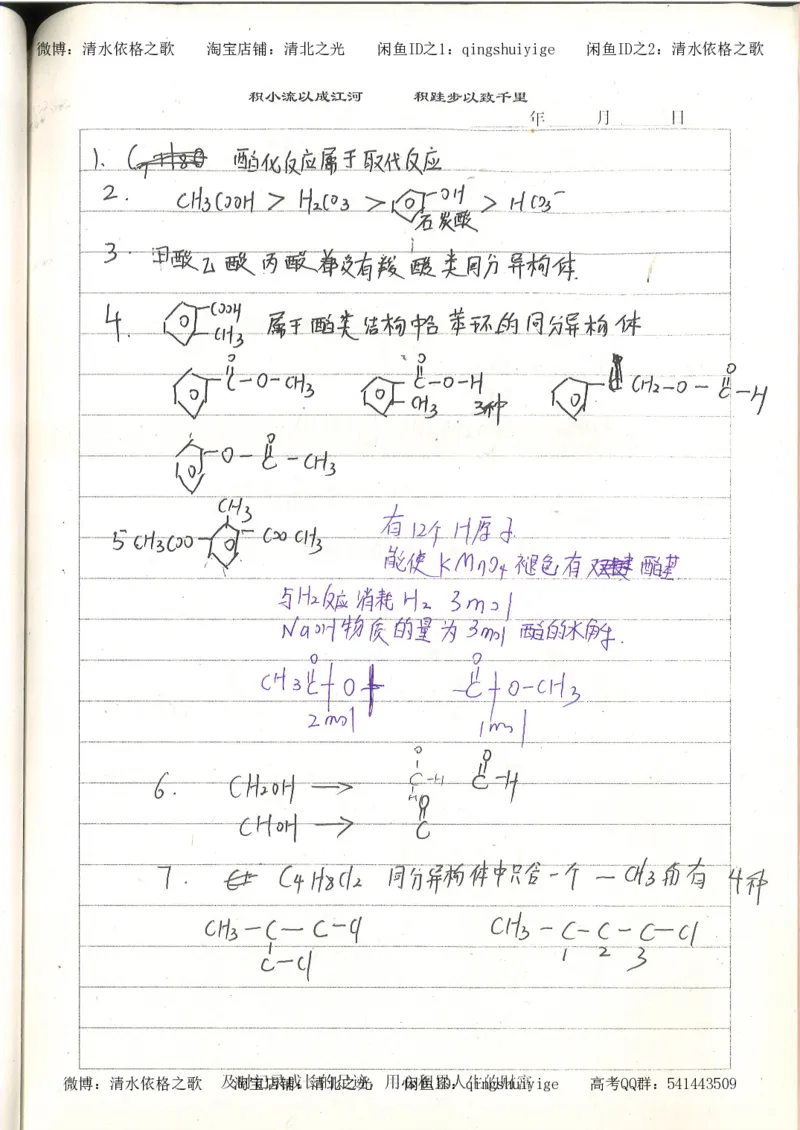 微博：清水依格之歌 淘宝店铺：清北之光 闲鱼ID之1：qingshuiyige 闲鱼ID之2：清水依格之歌
积小流以成江河 积跬步以致千里
年 月 日
1. 酯化反应属于取代反应
2. CH3COOH > H2CO3 > OH > HCO3⁻
石炭酸
3. 甲酸乙酸丙酸都没有羧酸类同分异构体.
4. COOH CH3 属于酯类结构中含苯环的同分异构体
O O O
C-O-CH3 C-O-H CH2-O-C-H
CH3 3种
O
O-C-CH3
CH3
5 CH3COO COOCH3 有12个H原子
能使KMnO4褪色有 酯基
与H2反应消耗H2 3mol
NaOH物质的量为3mol 酯的水解.
O O
CH3C O C O-CH3
2mol 1mol
O O
6. CH2OH → C-H C-H
H O
CHOH → C
7. C4H8Cl2 同分异构体中只含一个 -CH3的有 4种
CH3-C-C-Cl CH3-C-C-C-Cl
C-Cl 1 2 3
微博：清水依格之歌 淘宝店铺：清北之光 闲鱼ID：qingshuiyige 高考QQ群：541443509